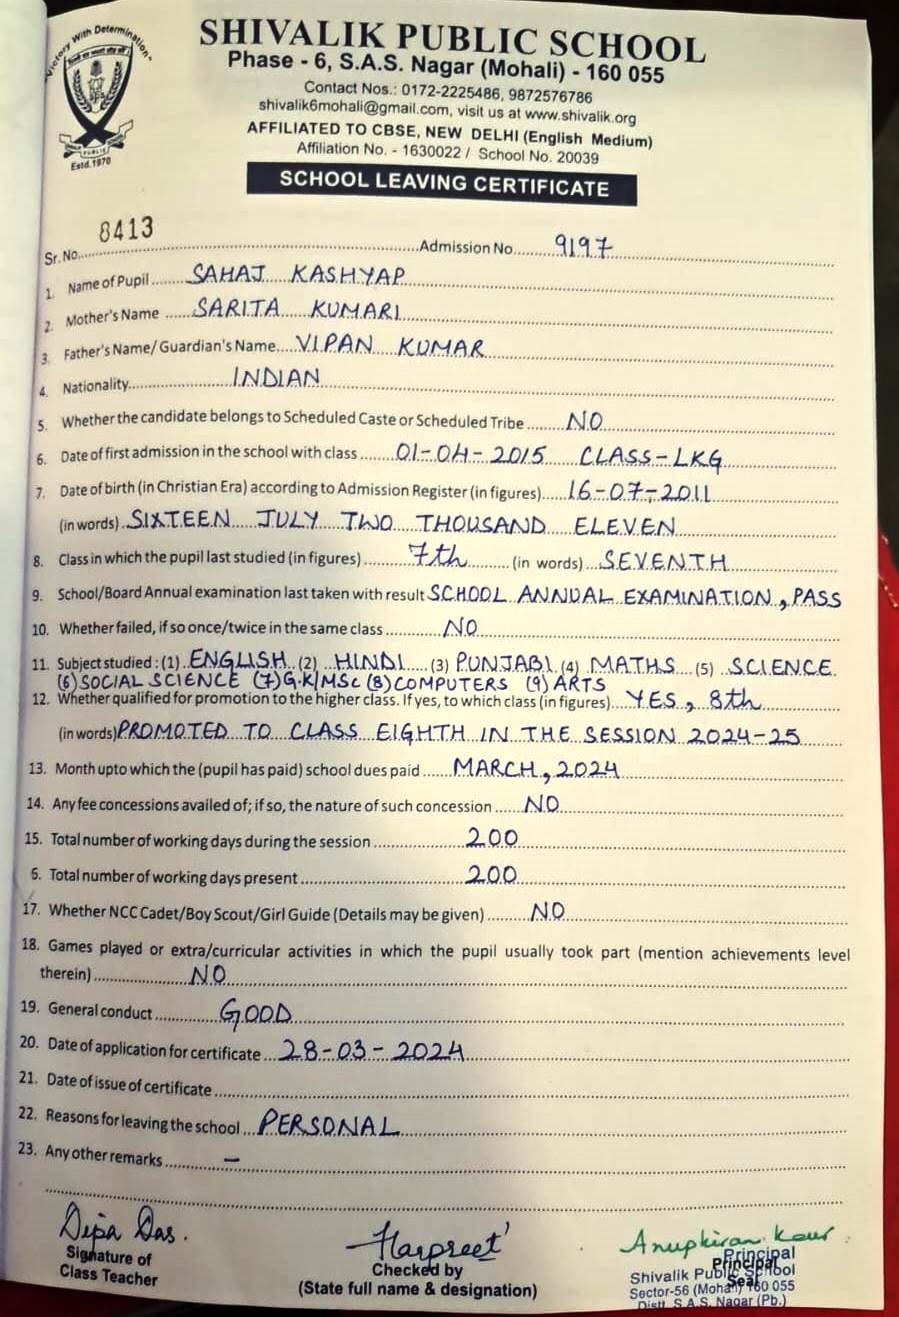 "Victory With Determination"
PUBLIC
Estd.1970
SHIVALIK PUBLIC SCHOOL
Phase - 6, S.A.S. Nagar (Mohali) - 160 055
Contact Nos.: 0172-2225486, 9872576786
shivalik6mohali@gmail.com, visit us at www.shivalik.org
AFFILIATED TO CBSE, NEW DELHI (English Medium)
Affiliation No. - 1630022 / School No. 20039
SCHOOL LEAVING CERTIFICATE
Sr. No. 8413 Admission No. 9197
1. Name of Pupil SAHAJ KASHYAP
2. Mother's Name SARITA KUMARI
3. Father's Name/ Guardian's Name VIPAN KUMAR
4. Nationality INDIAN
5. Whether the candidate belongs to Scheduled Caste or Scheduled Tribe NO
6. Date of first admission in the school with class 01-04-2015 CLASS-LKG
7. Date of birth (in Christian Era) according to Admission Register (in figures) 16-07-2011
(in words) SIXTEEN JULY TWO THOUSAND ELEVEN
8. Class in which the pupil last studied (in figures) 7th (in words) SEVENTH
9. School/Board Annual examination last taken with result SCHOOL ANNUAL EXAMINATION, PASS
10. Whether failed, if so once/twice in the same class NO
11. Subject studied : (1) ENGLISH (2) HINDI (3) PUNJABI (4) MATHS (5) SCIENCE
(6) SOCIAL SCIENCE (7) G.K/MSc (8) COMPUTERS (9) ARTS
12. Whether qualified for promotion to the higher class. If yes, to which class (in figures) YES, 8th
(in words) PROMOTED TO CLASS EIGHTH IN THE SESSION 2024-25
13. Month upto which the (pupil has paid) school dues paid MARCH, 2024
14. Any fee concessions availed of; if so, the nature of such concession NO
15. Total number of working days during the session 200
6. Total number of working days present 200
17. Whether NCC Cadet/Boy Scout/Girl Guide (Details may be given) NO
18. Games played or extra/curricular activities in which the pupil usually took part (mention achievements level
therein) NO
19. General conduct GOOD
20. Date of application for certificate 28-03-2024
21. Date of issue of certificate
22. Reasons for leaving the school PERSONAL
23. Any other remarks —
Dipa Das. Harpreet Anupkiran Kaur
Signature of
Class Teacher
Checked by
(State full name & designation)
Principal
Principal
Shivalik Public School
Seal
Sector-56 (Mohali) 160 055
Distt. S.A.S. Nagar (Pb.)